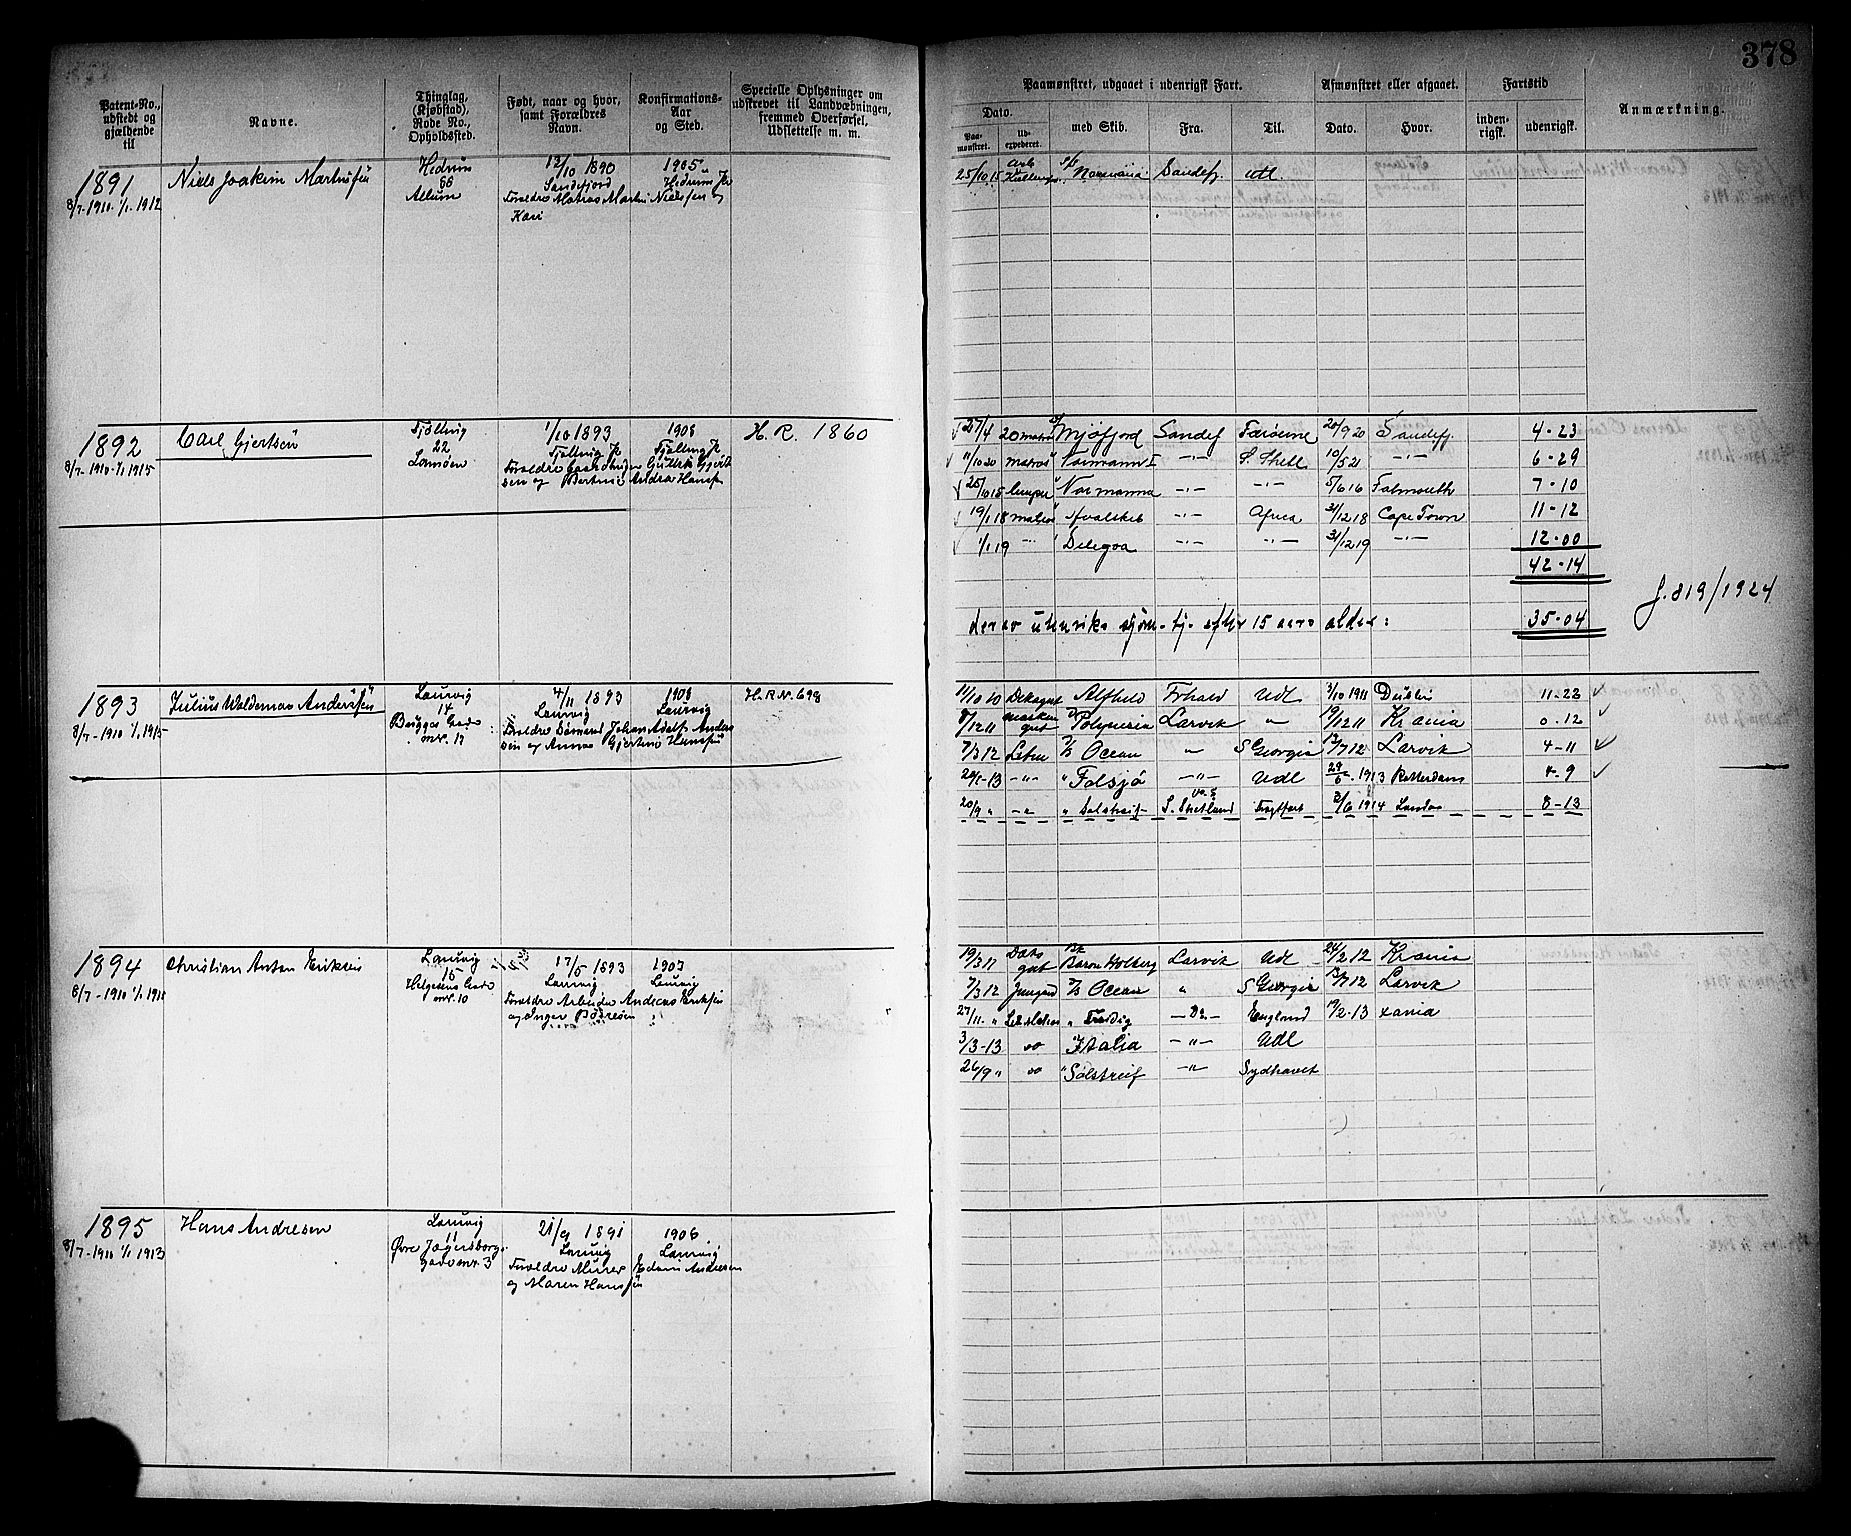 378
Patent-No., udstedt og gjældende til
Navne.
Thinglag, (Kjøbstad), Rode No., Opholdssted.
Født, naar og hvor, samt Forældres Navn.
Konfirmations-Aar og Sted.
Specielle Oplysninger om udskrevet til Landværnet, fremmed Overførsel, Udslettelse m. m.
Paamønstret, udgaaet i udenrigsk Fart.
Dato.
Paamønstret.
Udexpederet.
med Skib.
Fra.
Til.
Afmønstret eller afgaaet.
Dato.
Hvor.
Fartstid
indenrigsk.
udenrigsk.
Anmærkning.
1891
8/7-1910-1/1-1912
Niels Joakim
Hedrum
88
Allum
12/10 1890
Sandefjord
Forældre Matros Martin Nielsen og
Kari
1905
Hedrum K
25/10 15 s/s Normania Sandefj. Udl
1892
8/7-1910-1/1 1915
Carl Gjertsen
Tjølling
22
Lamøen
1/10 1893
Tjølling K
1908
Tjølling K
H. R. 1860
27/4 20 matros Mjøfjord Sandef Færøerne 20/9 20 Sandefj. 4-23
11/10 20 matros Normann I -"- S. Shetl 10/5 21 -"- 6-29
25/10 15 Normanna -"- -"- 5/6 16 Falmouth 7-10
19/1 18 matros Hvalskib -"- Africa 31/12 18 Cape Town 11-12
1/1 19 -"- Delegoa -"- -"- 31/12 19 -"- 12-00
42-14
derav utenriks sjøm. tj. efter 15 aars alder: 35-04
J. 819/1924
1893
8/7-1910 1/1 1915
Julius Waldemar Anderssen
Laurvig
14
Brygges Gade
nr. 19
4/11 1893
Laurvig
Forældre Sømand Johan Adolf Andersen og Anna Gjertine Hansen
1908
Laurvig
H.R.N. 698
11/10 10 Dæksgut Alfhild Frhald Udl 3/10 1911 Dublin 11-22
8/12 11 Polynesia Larvik " 19/12 11 Krania 0-12
7/3 12 Letm Ocean " S Georgia 12/7 12 Larvik 4-11
20/1-13 -"- " Folsjø -"- Udl 29/6 1913 Rotterdam 4-9
20/9 " -"- " Solstreif S. Shetland Fragtfart 3/6 1914 London 8-13
1894
8/7-1910 1/1 1915
Christian Anton Eriksen
Laurvig
15
Helgesens Gade
nr. 10
17/5 1893
Laurvig
Forældre Arbeider Andreas Eriksen
og Inger
1907
Laurvig
19/3 11 Dæksgut Bk Baron Holberg Larvik Udl 24/2 12 Krania
7/3 12 Jungmd Ocean " S Georgia 12/7 12 Larvik
27/11 " Let Matros " -"- England 19/2-13 xania
3/3-13 " Italia -"- Udl
26/9 " " Solstreif -"- Sydhavet
1895
8/7-1910 1/1 1913
Hans Andresen
Laurvig
11
Øvre Jægersborgs
gade nr. 3
21/9 1891
Laurvig
Forældre Murer Edvin Andresen
og Maren Hanssen
1906
Laurvig